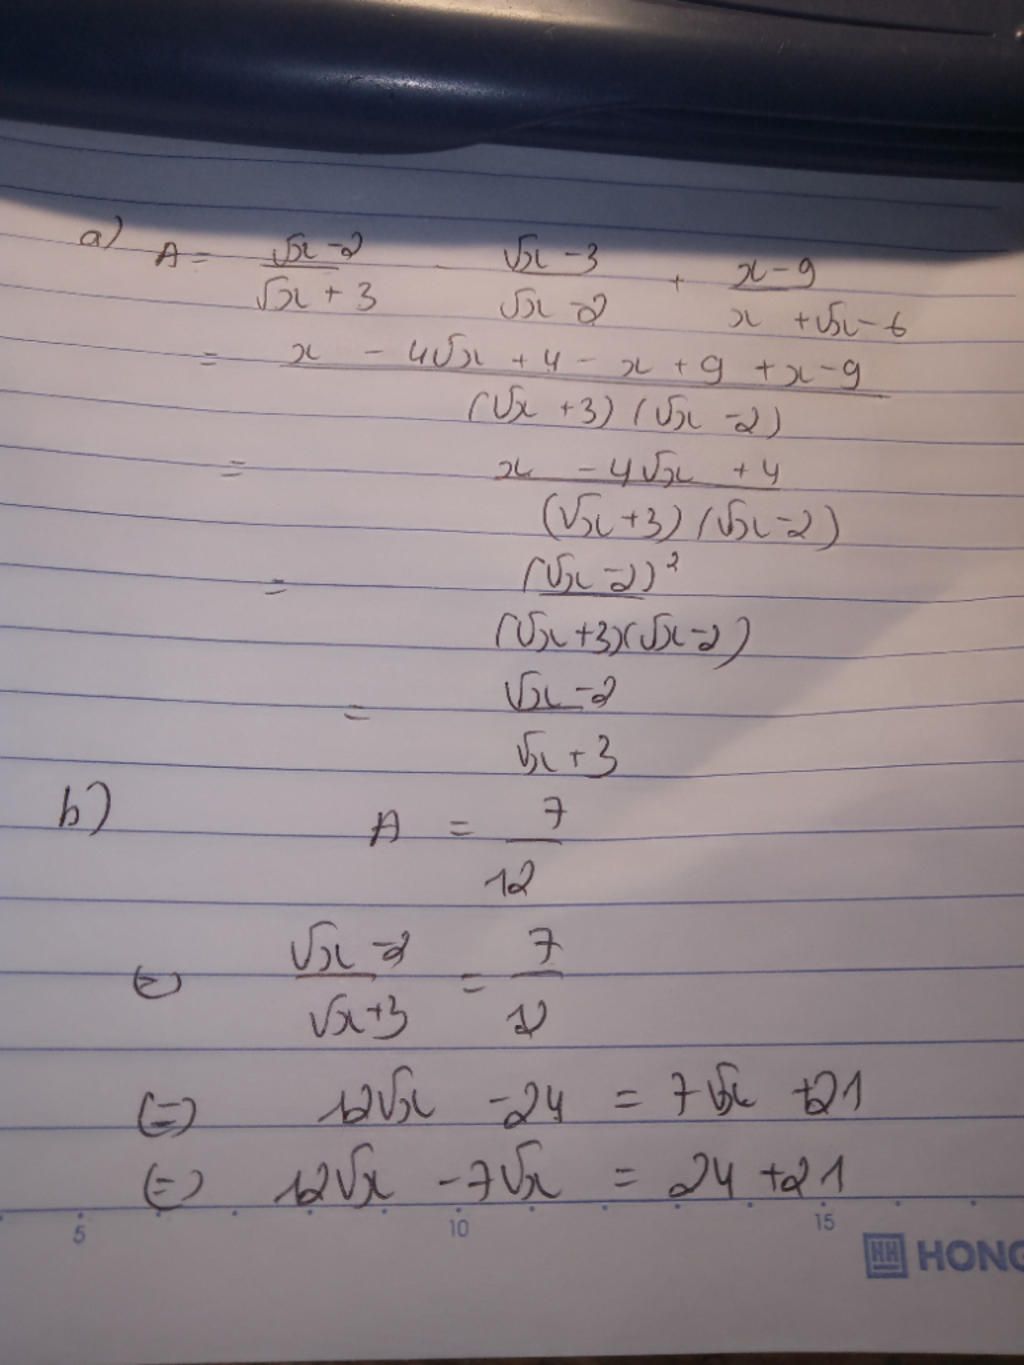 a) A = (√x - 2)/(√x + 3) - (√x - 3)/(√x - 2) + (x - 9)/(x + √x - 6)
= (x - 4√x + 4 - x + 9 + x - 9)/((√x + 3)(√x - 2))
= (x - 4√x + 4)/((√x + 3)(√x - 2))
= (√x - 2)²/((√x + 3)(√x - 2))
= (√x - 2)/(√x + 3)
b) A = 7/12
(=) (√x - 2)/(√x + 3) = 7/12
(=) 12√x - 24 = 7√x + 21
(=) 12√x - 7√x = 24 + 21
5 10 15
HH HONG